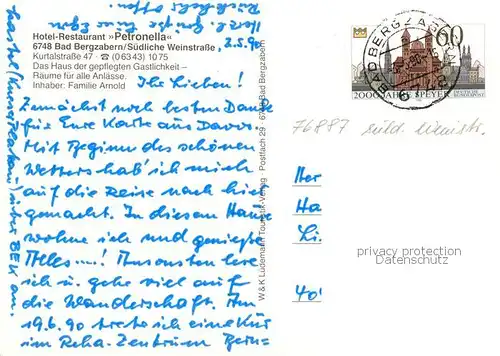 Hotel-Restaurant »Petronella«
6748 Bad Bergzabern/Südliche Weinstraße,
Kurtalstraße 47 · ☎ (0 63 43) 10 75
Das Haus der gepflegten Gastlichkeit –
Räume für alle Anlässe.
Inhaber: Familie Arnold
2.5.90
Ihr Lieben!
Zunächst noch besten Dank
für Eure Karte aus Davos.
Mit Beginn des schönen
Wetters hab' ich mich
auf die Reise nach hier
gemacht. In diesem Hause
wohne ich und genieße
Alles...! Ansonsten lese
ich u. gehe viel auf
die Wanderschaft. Am
19.6.90 trete ich eine Kur
im Reha-Zentrum Bern=
Herzl. Grüße Eure
W & K Lüdemann Touristik-Verlag · Postfach 29 · 6748 Bad Bergzabern
BAD BERGZABERN
60
2000 JAHRE SPEYER
DEUTSCHE BUNDESPOST
76887 südl. Weinstr.
Her
Ha
Li
40
privacy protection
Datenschutz